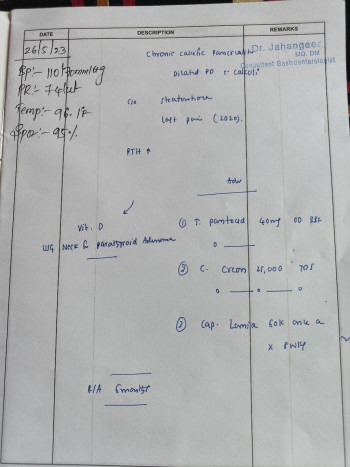 DATE DESCRIPTION REMARKS
26/5/23
Chronic calcific Pancreatitis
Dr. Jahangeer
MD, DM
Consultant Gastroenterologist
BP:- 110/70mmHg
PR:- 74/ut
Temp:- 96.1F
Spo2:- 95%
Dilated PD c calculi
c/o steatorrhoea
Last pain (2020).
PTH ↑
Adv
Vit. D
USG Neck for parathyroid Adenoma
① T. pantoud 40mg OD BBF
o
② C. Creon 25,000 TDS
o o o
③ Cap. Lumia 60K once a
x 8wks
R/A 6months